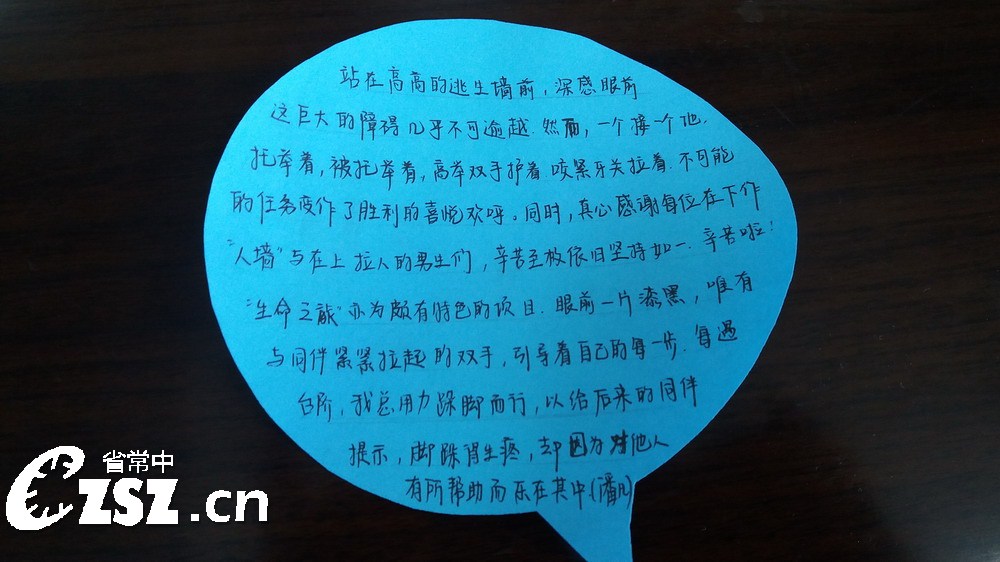 站在高高的逃生墙前，深感眼前
这巨大的障碍几乎不可逾越.然而，一个接一个地.
托举着，被托举着，高举双手护着.咬紧牙关拉着.不可能
的任务变作了胜利的喜悦欢呼。同时，真心感谢每位在下作
“人墙”与在上拉人的男生们，辛苦至极依旧坚持如一.辛苦啦！
“生命之旅”亦为颇有特色的项目.眼前一片漆黑，唯有
与同伴紧紧拉起的双手，引导着自己的每一步.每遇
台阶，我总用力跺脚而行，以给后来的同伴
提示，脚跺得生疼，却因为对他人
有所帮助而乐在其中(潘)
省常中
CZSZ.cn